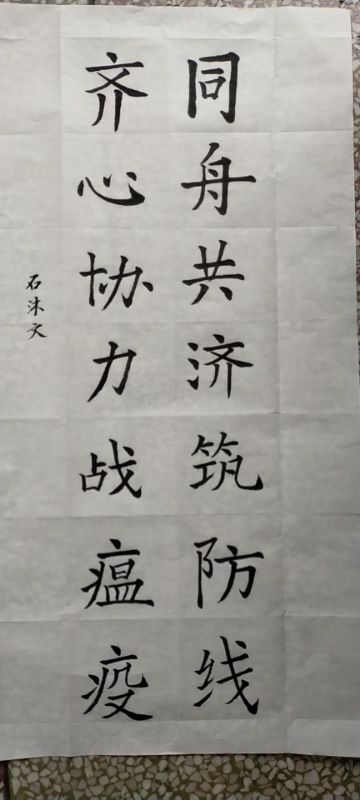 同舟共济筑防线
齐心协力战瘟疫
石沐文